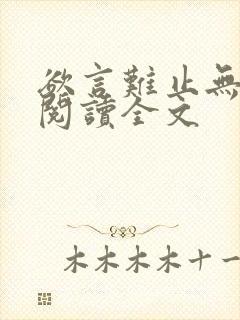 欲言難止無
閱讀全文
木木木木十一